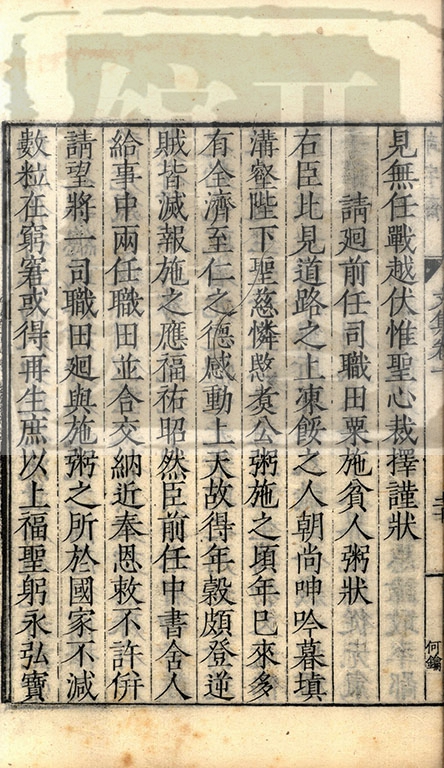 見無任戰越伏惟聖心裁擇謹狀
請廻前任司職田粟施貧人粥狀
右臣比見道路之上凍餒之人朝尚呻吟暮填
溝壑陛下聖慈憐愍煑公粥施之頃年已來多
有全濟至仁之德感動上天故得年穀頗登逆
賊皆滅報施之應福祐昭然臣前任中書舍人
給事中兩任職田並合交納近奉恩敕不許併
請望將一司職田廻與施粥之所於國家不減
數粒在窮窘或得再生庶以上福聖躬永弘寶
何鑰